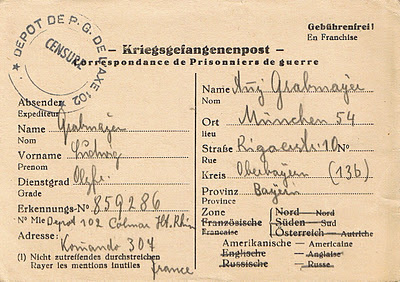 DEPOT DE P. G. DE L'AXE 102
CENSURE
Gebührenfrei!
En Franchise
— Kriegsgefangenenpost —
Correspondance de Prisonniers de guerre
Absender
Expediteur
Name Grabmayer
Nom
Vorname Ludwig
Prenom
Dienstgrad
Grade
Erkennungs-Nº 859286
Nº Mle Depot 102 Colmar Ht. Rhin
Adresse: Komando 304
france
(1) Nicht zutreffendes durchstreichen
Rayer les mentions inutiles
Name Grabmayer
Nom
Ort München 54
lieu
Straße Rigaerstr. 10 Nº
Rue
Kreis Oberbayern (13b)
Provinz Bayern
Province
Zone Nord - Nord
Französische Süden - Sud
Francaise Österreich - Autriche
Amerikanische - Americaine
Englische - Anglaise
Russische - Russe